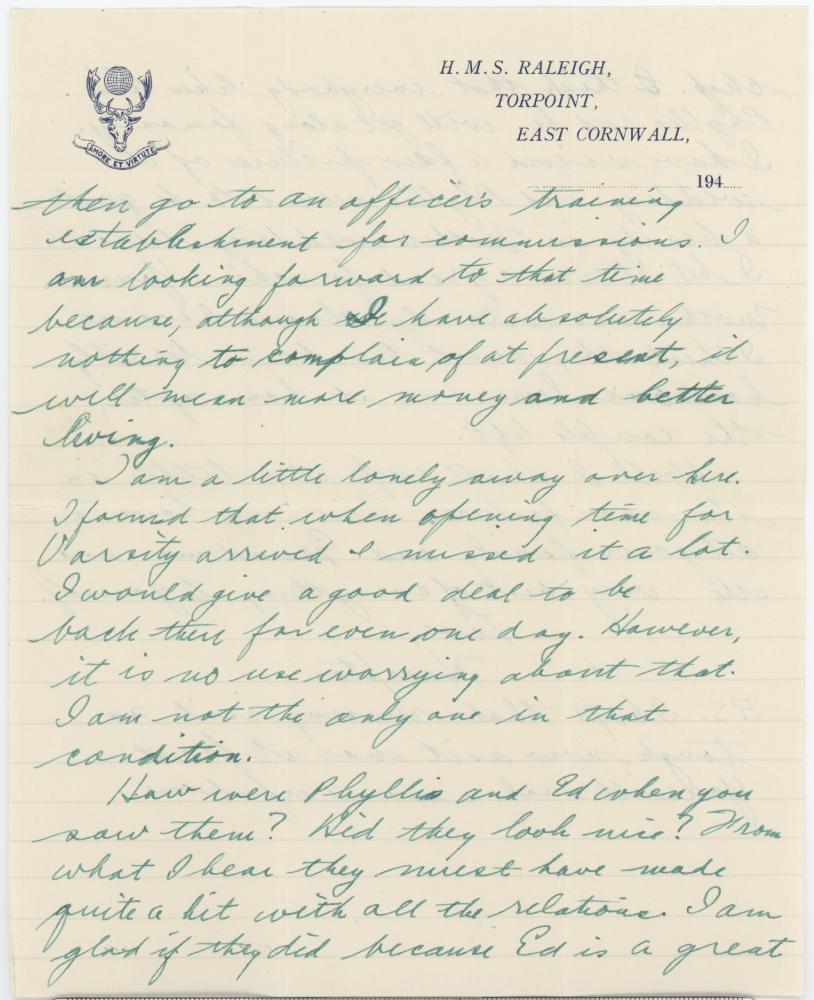 AMORE ET VIRTUTE
H.M.S. RALEIGH,
TORPOINT,
EAST CORNWALL,
194
then go to an officer's training
establishment for commissions. I
am looking forward to that time
because, although I have absolutely
nothing to complain of at present, it
will mean more money and better
living.
I am a little lonely away over here.
I found that when opening time for
Varsity arrived I missed it a lot.
I would give a good deal to be
back there for even one day. However,
it is no use worrying about that.
I am not the only one in that
condition.
How were Phyllis and Ed when you
saw them? Did they look nice? From
what I hear they must have made
quite a hit with all the relations. I am
glad if they did because Ed is a great